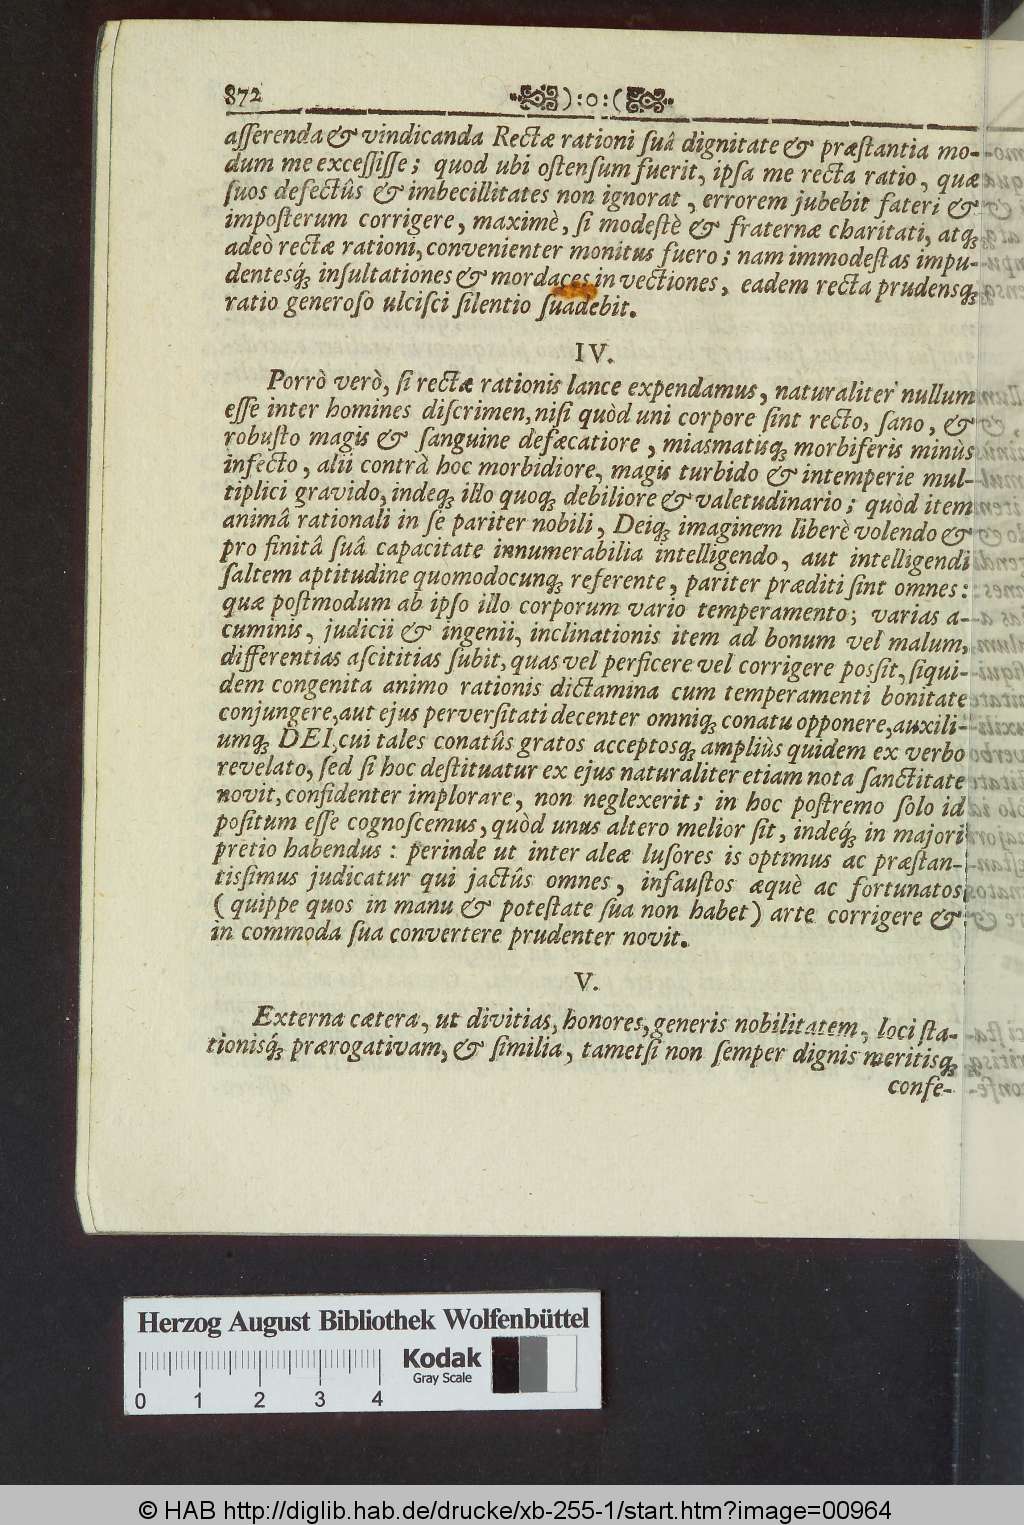 872 ):o:(
aſſerenda & vindicanda Rectæ rationi ſuâ dignitate & præſtantia mo-
dum me exceſſiſſe; quod ubi oſtenſum fuerit, ipſa me recta ratio, quæ
ſuos defectûs & imbecillitates non ignorat, errorem jubebit fateri &
impoſterum corrigere, maximè, ſi modeſtè & fraternæ charitati, atq;
adeò rectæ rationi, convenienter monitus fuero; nam immodeſtas impu-
dentesq́; inſultationes & mordaces invectiones, eadem recta prudensq;
ratio generoſo ulciſci ſilentio ſuadebit.
IV.
Porrò verò, ſi rectæ rationis lance expendamus, naturaliter nullum
eſſe inter homines diſcrimen, niſi quòd uni corpore ſint recto, ſano, &
robuſto magis & ſanguine defæcatiore, miasmatisq; morbiferis minùs
infecto, alii contrà hoc morbidiore, magis turbido & intemperie mul-
tiplici gravido, indeq; illo quoq; debiliore & valetudinario; quòd item
animâ rationali in ſe pariter nobili, Deiq; imaginem liberè volendo &
pro finitâ ſuâ capacitate innumerabilia intelligendo, aut intelligendi
ſaltem aptitudine quomodocunq; referente, pariter præditi ſint omnes:
quæ poſtmodum ab ipſo illo corporum vario temperamento; varias a-
cuminis, judicii & ingenii, inclinationis item ad bonum vel malum,
differentias aſcititias ſubit, quas vel perficere vel corrigere poſſit, ſiqui-
dem congenita animo rationis dictamina cum temperamenti bonitate
conjungere, aut ejus perverſitati decenter omniq; conatu opponere, auxili-
umq; DEI, cui tales conatûs gratos acceptosq; ampliùs quidem ex verbo
revelato, ſed ſi hoc deſtituatur ex ejus naturaliter etiam nota ſanctitate
novit, confidenter implorare, non neglexerit; in hoc poſtremo ſolo id
poſitum eſſe cognoſcemus, quòd unus altero melior ſit, indeq́; in majori
pretio habendus: perinde ut inter aleæ luſores is optimus ac præſtan-
tiſſimus judicatur qui jactûs omnes, infauſtos æquè ac fortunatos
(quippe quos in manu & poteſtate ſua non habet) arte corrigere &
in commoda ſua convertere prudenter novit.
V.
Externa cætera, ut divitias, honores, generis nobilitatem, loci ſta-
tionisq́; prærogativam, & ſimilia, tametſi non ſemper dignis meritisq;
confe-
Herzog August Bibliothek Wolfenbüttel
Kodak
Gray Scale
0 1 2 3 4
© HAB http://diglib.hab.de/drucke/xb-255-1/start.htm?image=00964